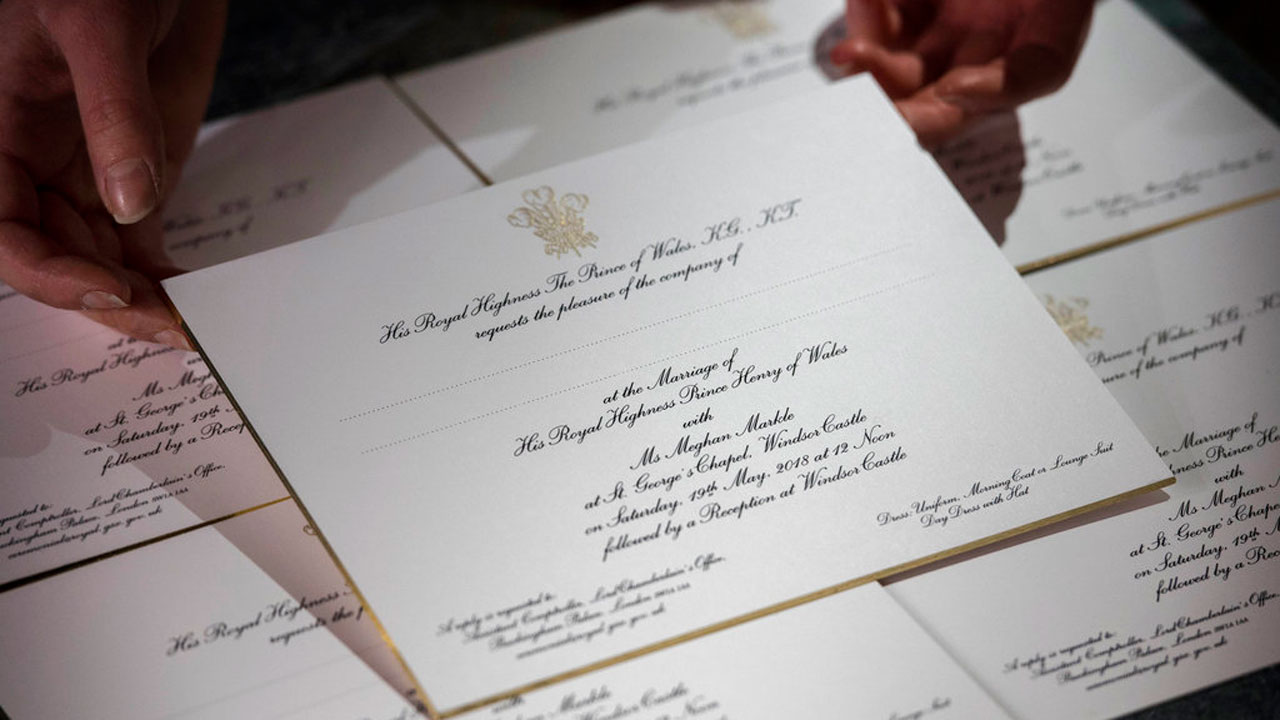 His Royal Highness The Prince of Wales, K.G., K.T.
requests the pleasure of the company of
at the Marriage of
His Royal Highness Prince Henry of Wales
with
Ms Meghan Markle
at St. George's Chapel, Windsor Castle
on Saturday, 19th May, 2018 at 12 Noon
followed by a Reception at Windsor Castle
Dress: Uniform, Morning Coat or Lounge Suit
Day Dress with Hat
A reply is requested to:
Assistant Comptroller, Lord Chamberlain's Office,
Buckingham Palace, London
His Royal Highness
Ms Megh
at St. George's Cha
on Saturday, 19th
followed by a Recep
Lord Chamberlain's Office,
Buckingham Palace, London
His Royal Highness
requests the p
Prince of Wales, K.G.
of the company of
Marriage of
Prince He
with
Ms Meghan
at St. George's Chape
on Saturday, 19th
followed by a Rece
A reply is requested to:
Assistant Comptroller, Lord Chamberlain's Office,
Buckingham Palace, London
with
Markle
Windsor Castle
12 Noon